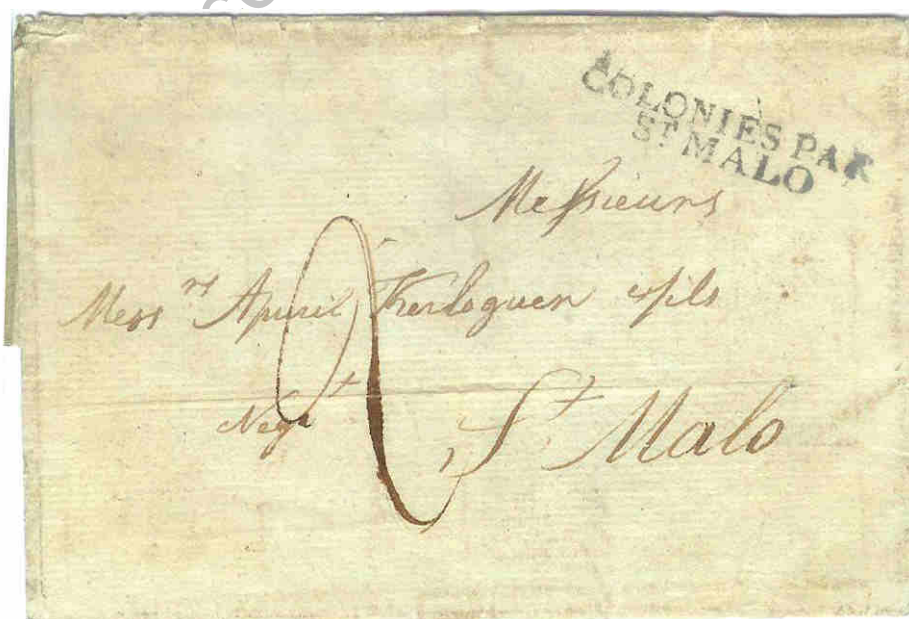 COLONIES PAR
ST MALO
Messieurs
Mess rs Apuril Kerloguen fils
Negt
St Malo
2